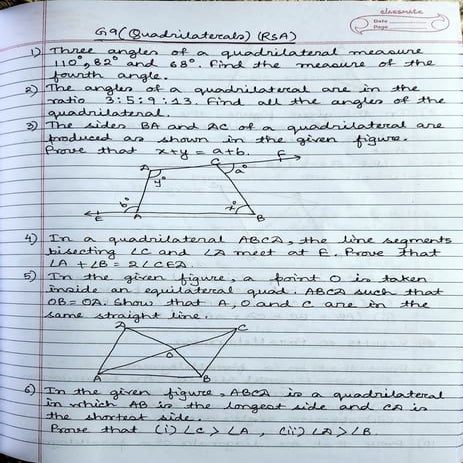 classmate
Date
Page
G9 (Quadrilaterals) (RSA)
1) Three angles of a quadrilateral measure
110°, 82° and 68°. Find the measure of the
fourth angle.
2) The angles of a quadrilateral are in the
ratio 3:5:9:13. Find all the angles of the
quadrilateral.
3) The sides BA and DC of a quadrilateral are
produced as shown in the given figure.
Prove that x+y = a+b.
D C F
y° a°
b° x°
E A B
4) In a quadrilateral ABCD, the line segments
bisecting ∠C and ∠D meet at E. Prove that
∠A + ∠B = 2∠CED
5) In the given figure, a point O is taken
inside an equilateral quad. ABCD such that
OB = OD. Show that A, O and C are in the
same straight line.
D C
O
A B
6) In the given figure, ABCD is a quadrilateral
in which AB is the longest side and CD is
the shortest side.
Prove that (i) ∠C > ∠A , (ii) ∠D > ∠B